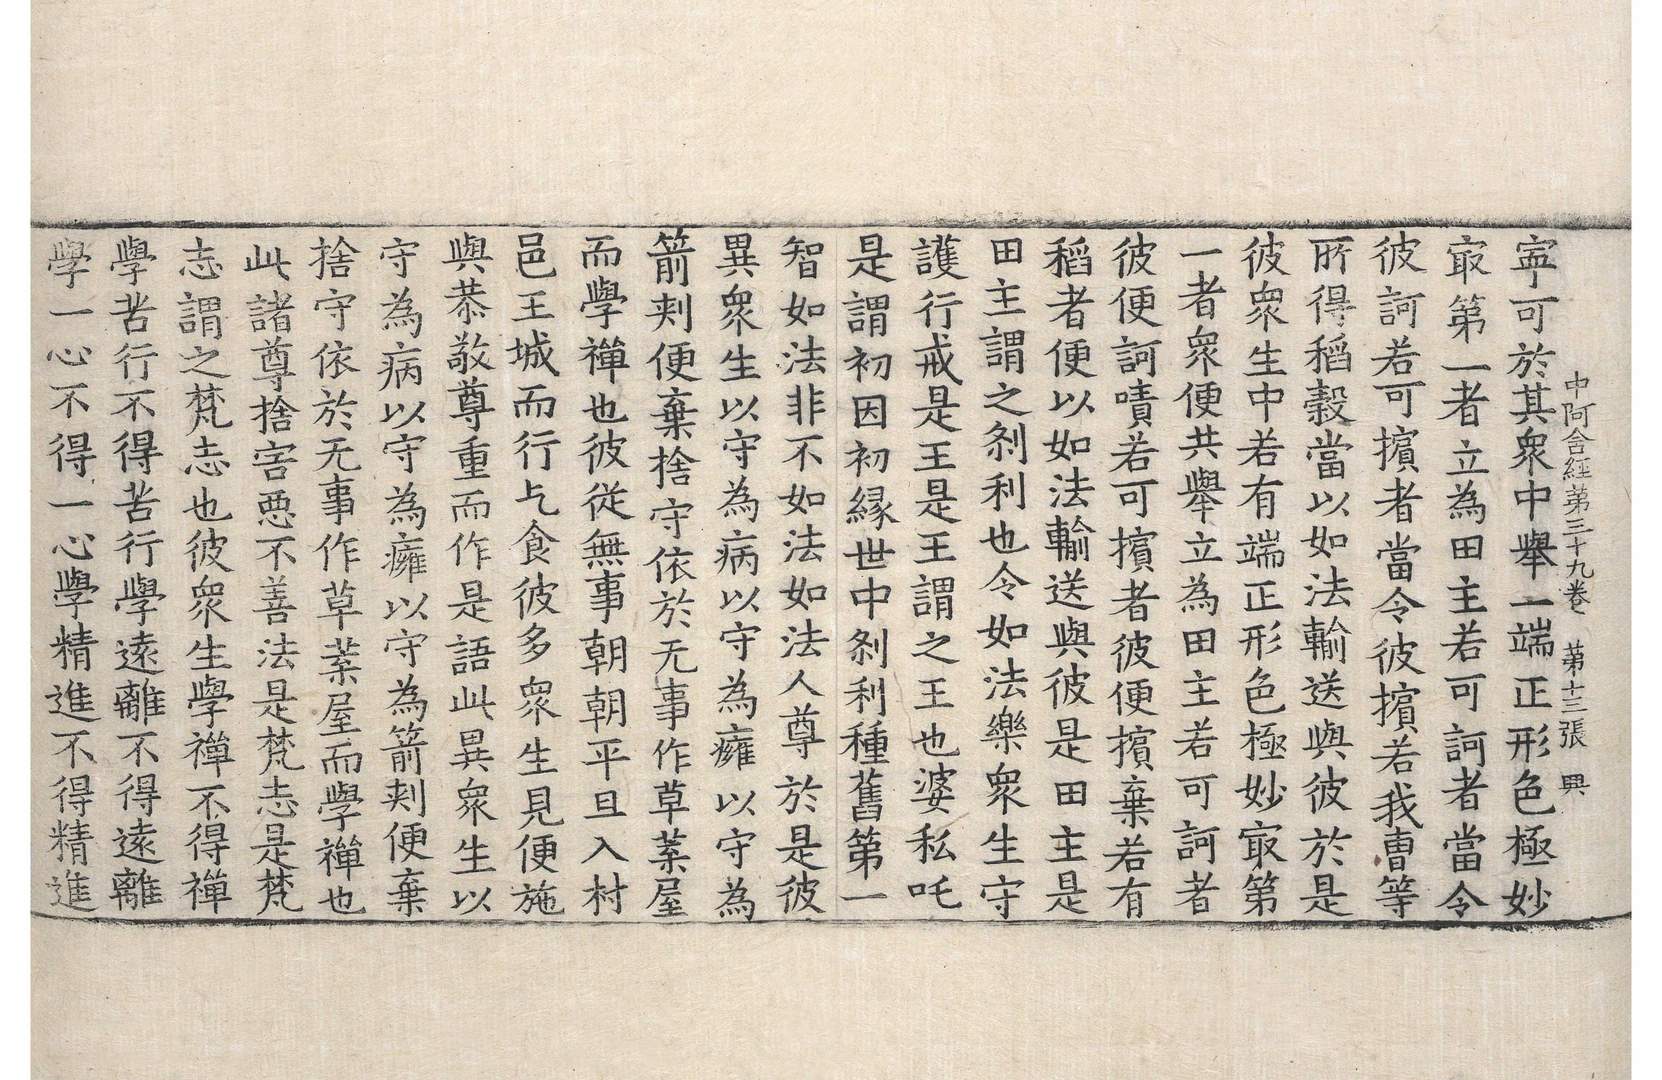 中阿含經第三十九卷　第十三張　興
寜可於其衆中舉一端正形色極妙
㝡第一者立為田主若可訶者當令
彼訶若可擯者當令彼擯若我曹等
所得稻穀當以如法輸送與彼於是
彼衆生中若有端正形色極妙㝡第
一者衆便共舉立為田主若可訶者
彼便訶嘖若可擯者彼便擯棄若有
稻者便以如法輸送與彼是田主是
田主謂之刹利也令如法樂衆生守
護行戒是王是王謂之王也婆私吒
是謂初因初縁世中刹利種舊第一
智如法非不如法如法人尊於是彼
異衆生以守為病以守為癰以守為
箭刾便棄捨守依於无事作草葉屋
而學禪也彼從無事朝朝平旦入村
邑王城而行乞食彼多衆生見便施
與恭敬尊重而作是語此異衆生以
守為病以守為癰以守為箭刾便棄
捨守依於无事作草葉屋而學禪也
此諸尊捨害惡不善法是梵志是梵
志謂之梵志也彼衆生學禪不得禪
學苦行不得苦行學遠離不得遠離
學一心不得一心學精進不得精進